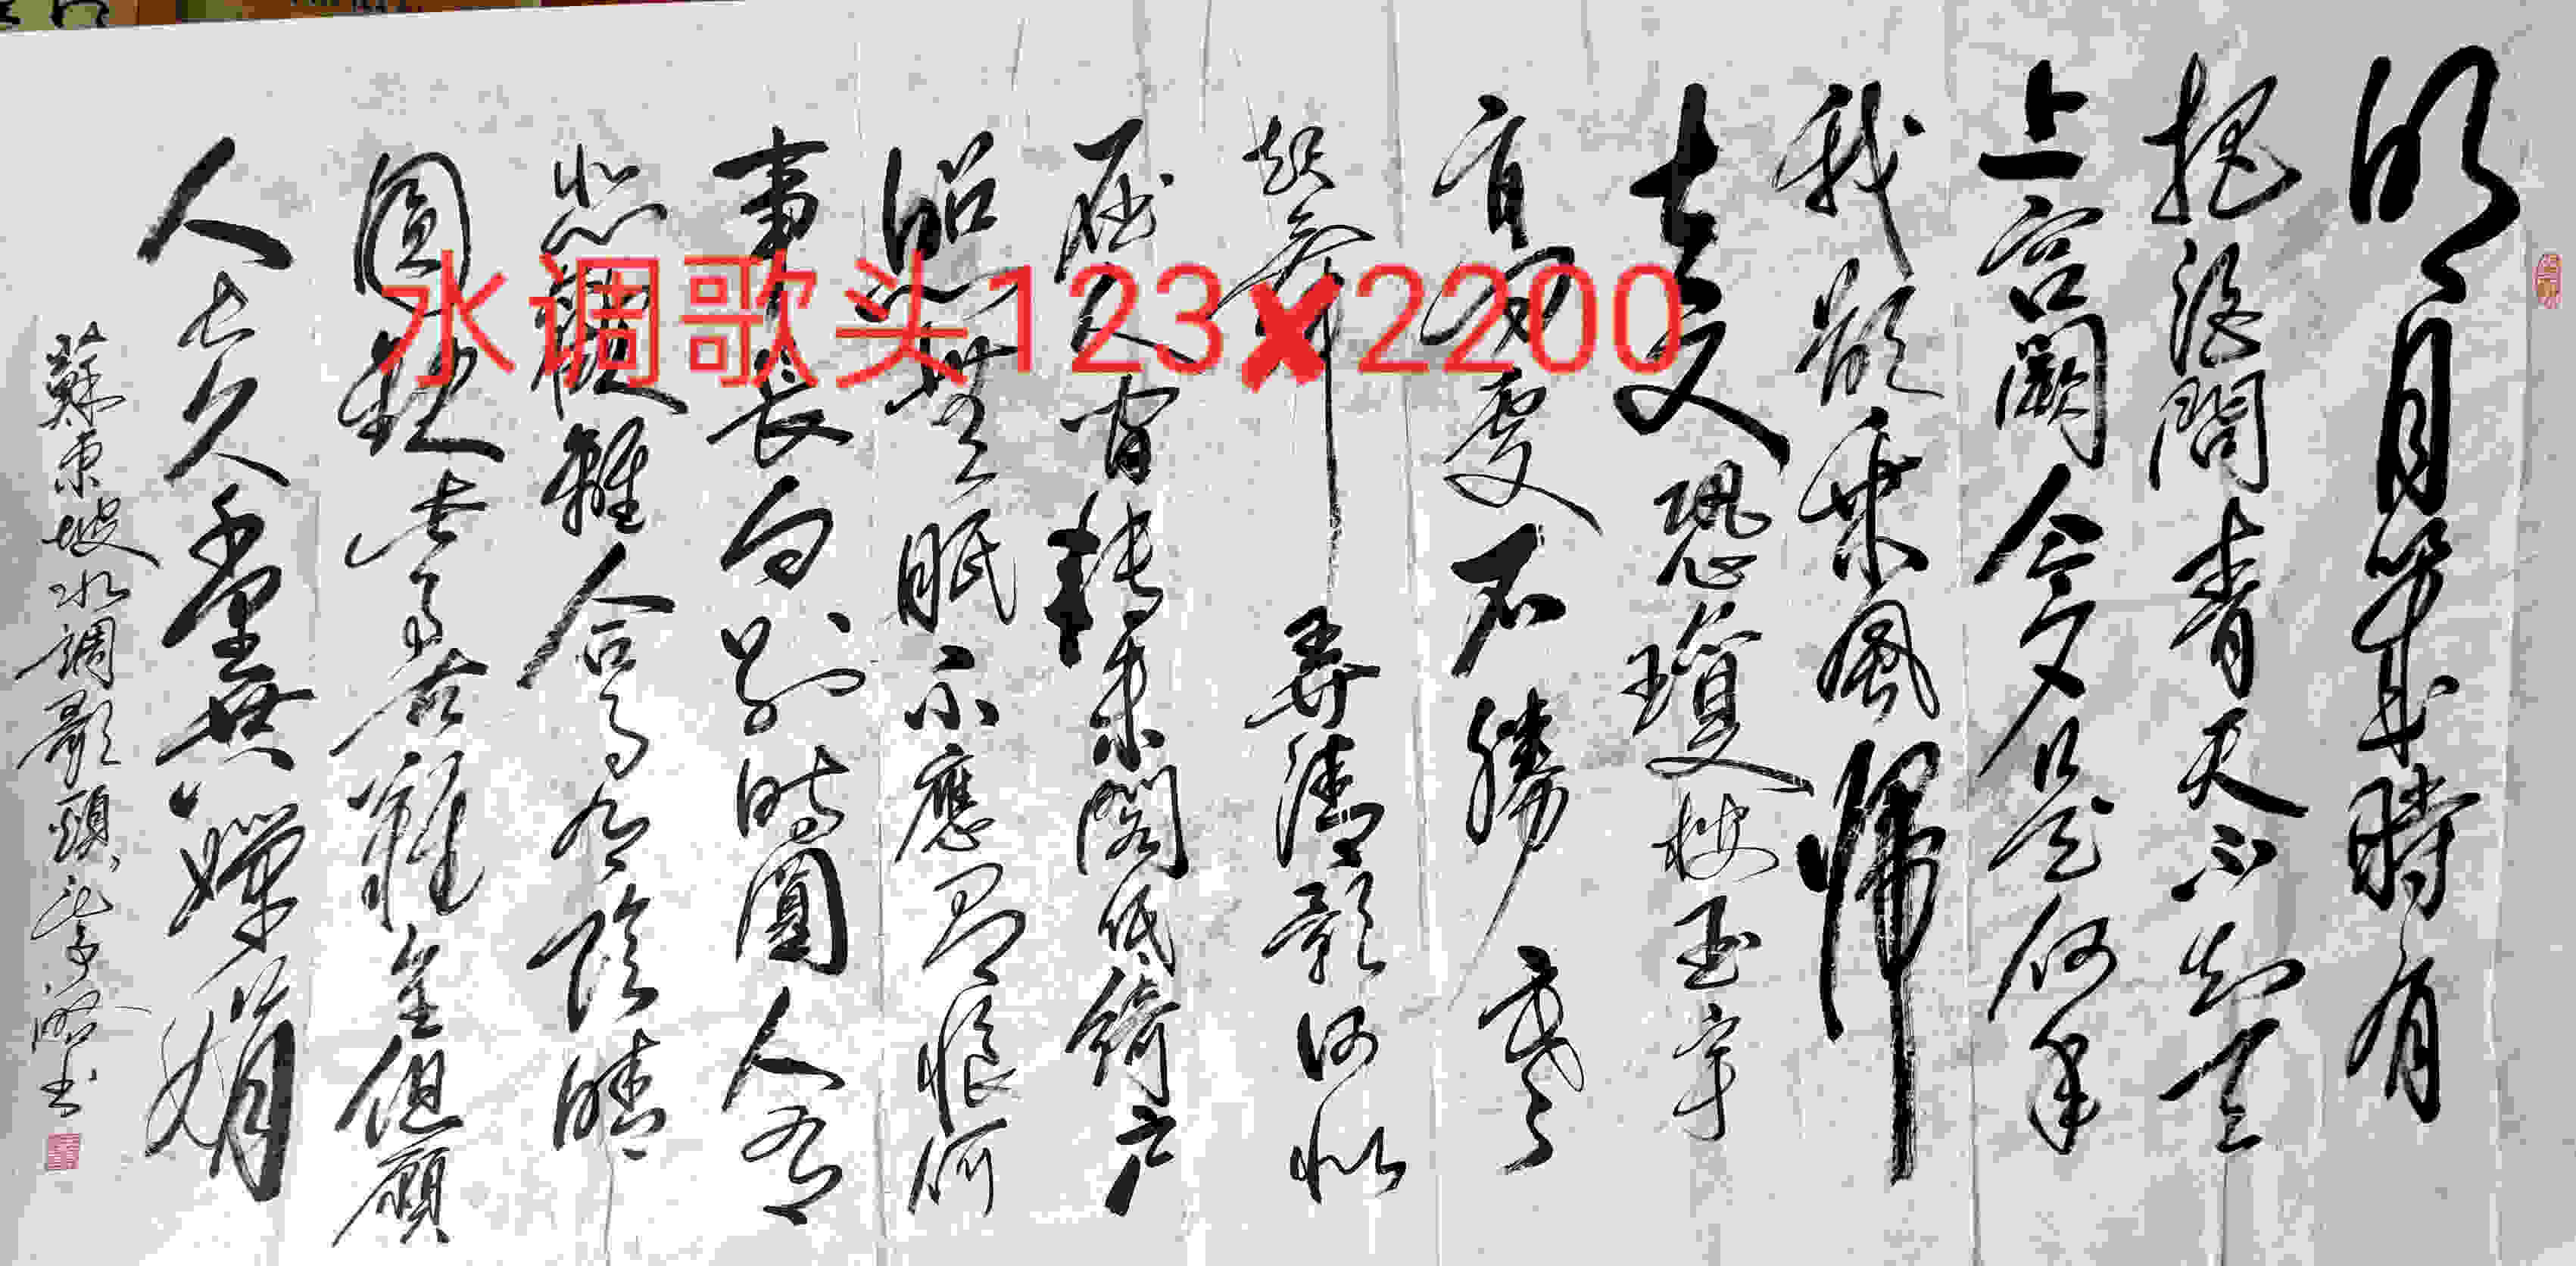 明月几時有
把酒問青天不知天
上宮闕今夕是何年
我欲乘風歸
去又恐瓊楼玉宇
高處不勝寒
起舞弄清影何似
在人间轉朱閣低綺户
照無眠不應有恨何
事長向别時圓人有
悲歡離合月有陰晴
圓缺此事古難全但願
人长久千里共嬋娟
蘇東坡水調歌頭
书
水调歌头123✖2200